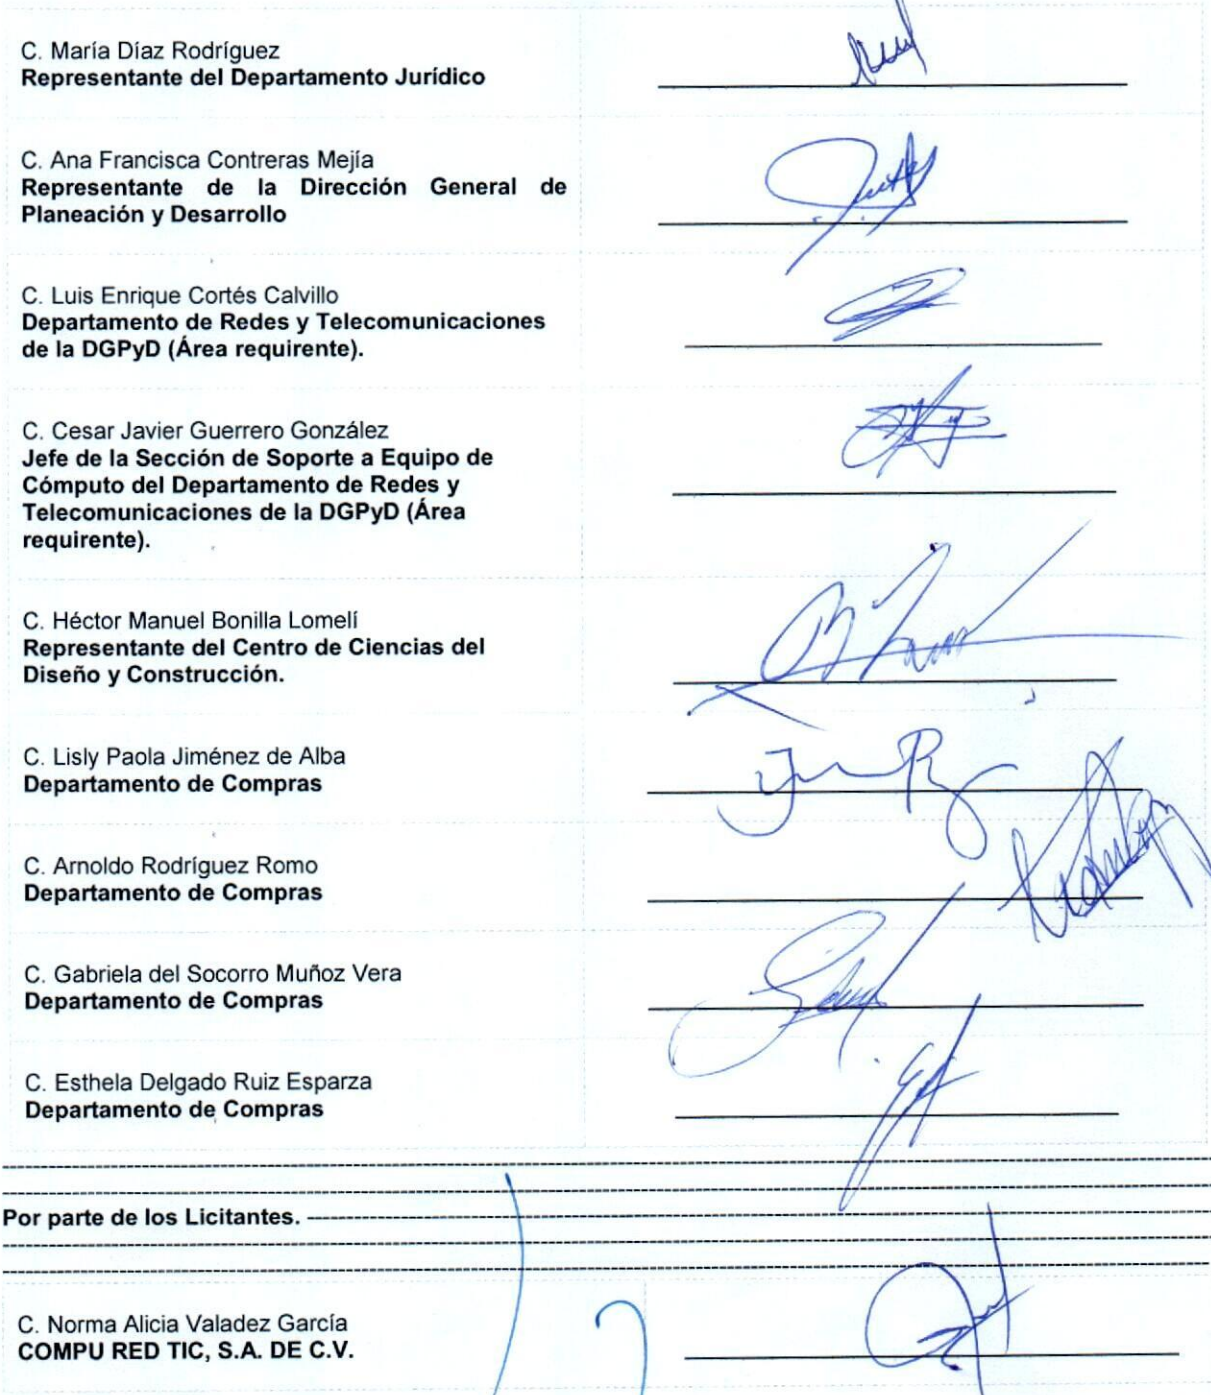 C. María Díaz Rodríguez
Representante del Departamento Jurídico
C. Ana Francisca Contreras Mejía
Representante de la Dirección General de
Planeación y Desarrollo
C. Luis Enrique Cortés Calvillo
Departamento de Redes y Telecomunicaciones
de la DGPyD (Área requirente).
C. Cesar Javier Guerrero González
Jefe de la Sección de Soporte a Equipo de
Cómputo del Departamento de Redes y
Telecomunicaciones de la DGPyD (Área
requirente).
C. Héctor Manuel Bonilla Lomelí
Representante del Centro de Ciencias del
Diseño y Construcción.
C. Lisly Paola Jiménez de Alba
Departamento de Compras
C. Arnoldo Rodríguez Romo
Departamento de Compras
C. Gabriela del Socorro Muñoz Vera
Departamento de Compras
C. Esthela Delgado Ruiz Esparza
Departamento de Compras
Por parte de los Licitantes.
C. Norma Alicia Valadez García
COMPU RED TIC, S.A. DE C.V.